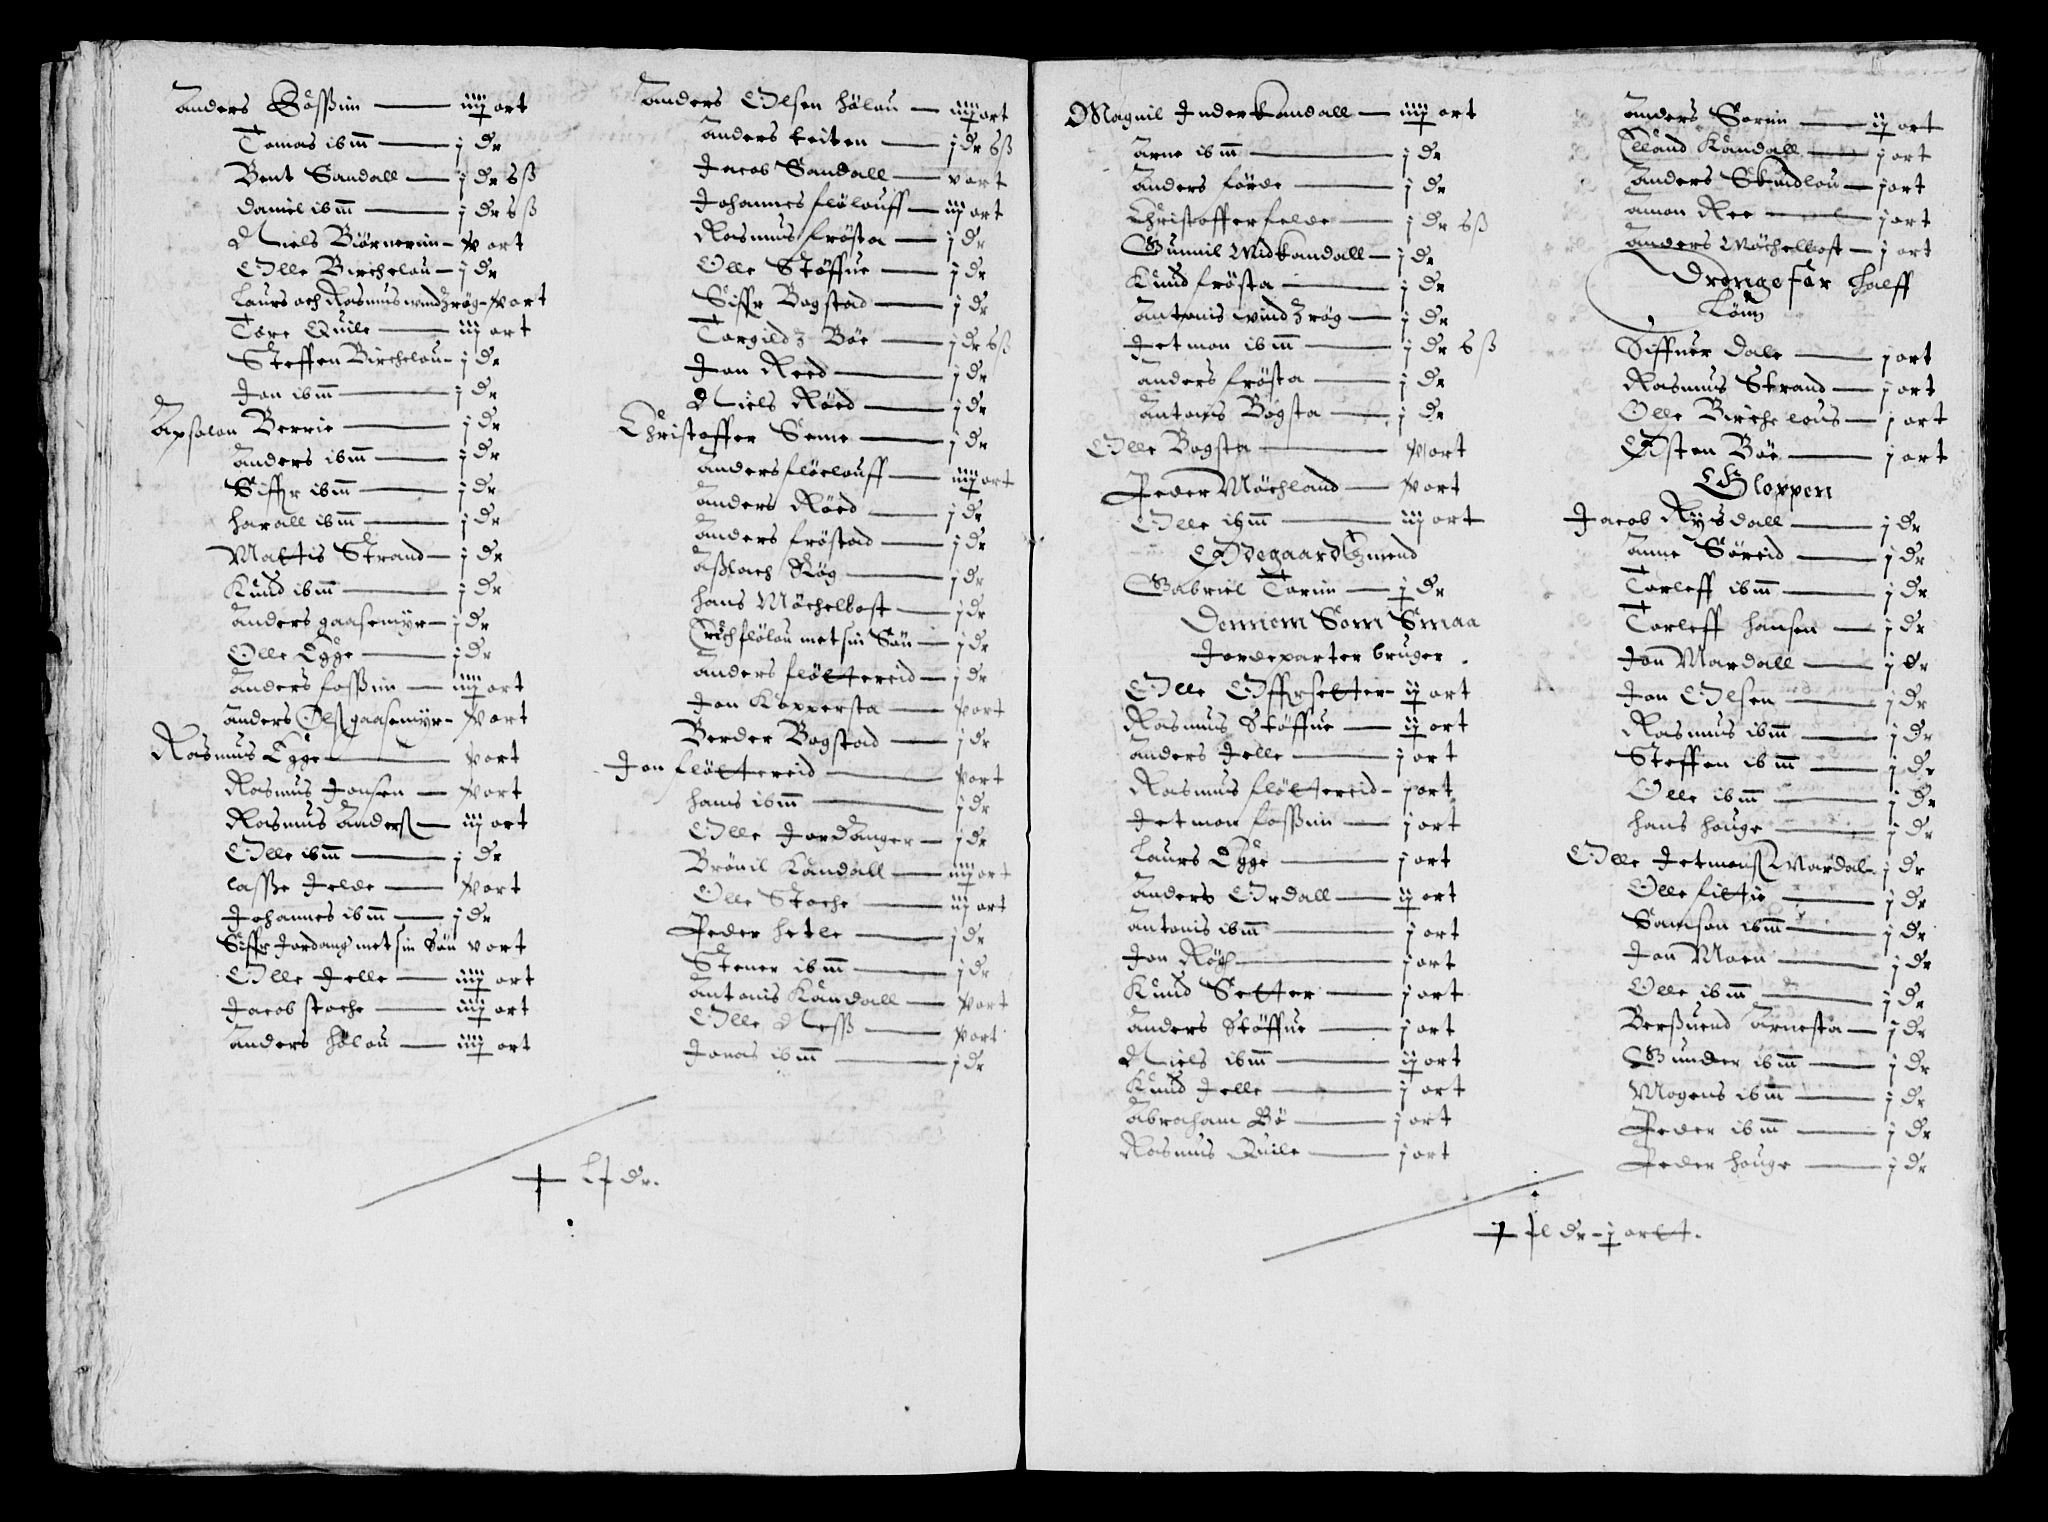 Anders Gößßiin — iiij ort
Tomas ibm — j dr
Bent Sandall — j dr 6 ß
Daniel ibm — j dr 6 ß
Niels Biørneriin — v ort
Olle Birchelou — j dr
Laurs och Rasmus windzrøg — v ort
Tore Quile — iij ort
Steffen Birchelou — j dr
Jon ibm — j dr
Apsolon Berrie — j dr
Anders ibm — j dr
Siffr ibm — j dr
Harall ibm — j dr
Mattis Strand — j dr
Knud ibm — j dr
Anders gaasemyr — j dr
Olle Egge — j dr
Anders foßßiin — iiij ort
Anders Olß gaasemyr — v ort
Rasmus Egge — v ort
Rasmus Jonsen — v ort
Rasmus Anderß — iij ort
Olle ibm — j dr
Laße Jelde — v ort
Johannes ibm — j dr
Siffr Jordang met sin Søn v ort
Olle Jelle — iiij ort
Jacob stoche — iiij ort
Anders Hølou — iiij ort
Anders Olsen Hølou — iiij ort
Anders teiten — j dr 6 ß
Jacob Sandall — v ort
Johannes fløelouff — iij ort
Rasmus frøsta — j dr
Olle Støffue — j dr
Siffr Bogstad — j dr
Torgildz Bøe — j dr 6 ß
Jon Reed — j dr
Niels Røed — j dr
Christoffer Seme — j dr
Anders fløelouff — iiij ort
Anders Røed — j dr
Anders frøstad — j dr
Aßlach Røg — j dr
Hans Møchelbost — j dr
Erich flølou met sin Søn — j dr
Anders fløttereid — j dr
Jon Koppersta — v ort
Berder Bogstad — j dr
Jon fløttereid — v ort
Hans ibm — j dr
Olle Jordanger — j dr
Brønil Kandall — iiij ort
Olle Stoche — iij ort
Peder Hetle — j dr
Stener ibm — j dr
Antonis Kandall — v ort
Olle Neß — v ort
Jonas ibm — j dr
Lj dr.
Magnil Jnderkandall — iiij ort
Arne ibm — j dr
Anders førde — j dr
Christoffer felde — j dr 6 ß
Gunnil Midkandall — j dr
Knud frøsta — j dr
Antonis windzrøg — j dr
Jetmon ibm — j dr 6 ß
Anders frøsta — j dr
Antonis Bogsta — j dr
Olle Bogsta — v ort
Peder Møchland — v ort
Olle ibm — iij ort
Ødegaardtzmend
Gabriel Toriin — j dr
Dennem Som Smaa
Jordeparter bruger
Olle Offrsetter — ij ort
Rasmus Støffue — ij ort
Anders Jelle — j ort
Rasmus fløttereid — j ort
Jetmon foßßiin — j ort
Laurs Egge — j ort
Anders Ordall — ij ort
Antonis ibm — j ort
Jon Røgh — j ort
Knud Setter — j ort
Anders Støffue — j ort
Niels ibm — ij ort
Knud Jelle — j ort
Abraham Bø — j ort
Rasmus Quile — j ort
Anders Soriin — ij ort
Elland Kandall — j ort
Anders Skeidlou — j ort
Amon Ree — j ort
Anders Møchelbost — j ort
Drenge for Halff
Lønn
Siffuer Dale — j ort
Rasmus Strand — j ort
Olle Birchelous — j ort
Østen Bøe — j ort
Gloppen
Jacob Rysdall — j dr
Anne Søreid — j dr
Torleff ibm — j dr
Torleff Hansen — j dr
Jon Mardall — j dr
Jon Olsen — j dr
Rasmus ibm — j dr
Steffen ibm — j dr
Olle ibm — j dr
Hans Houge — j dr
Olle Jetmonß Mardal — j dr
Olle fittie — j dr
Samson ibm — j dr
Jon Moen — j dr
Olle ibm — j dr
Berßuend Arnesta — j dr
Gunder ibm — j dr
Mogens ibm — j dr
Peder ibm — j dr
Peder Houge — j dr
dr – j ortt.